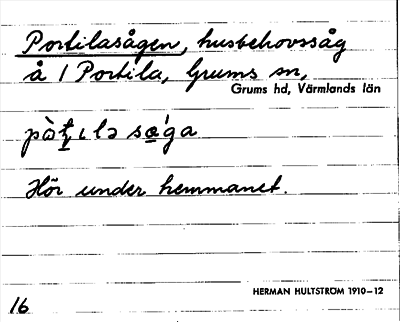 Portilasågen, husbehovssåg
å / Portila, Grums sn,
Grums hd, Värmlands län
Hör under hemmanet.
HERMAN HULTSTRÖM 1910–12
16